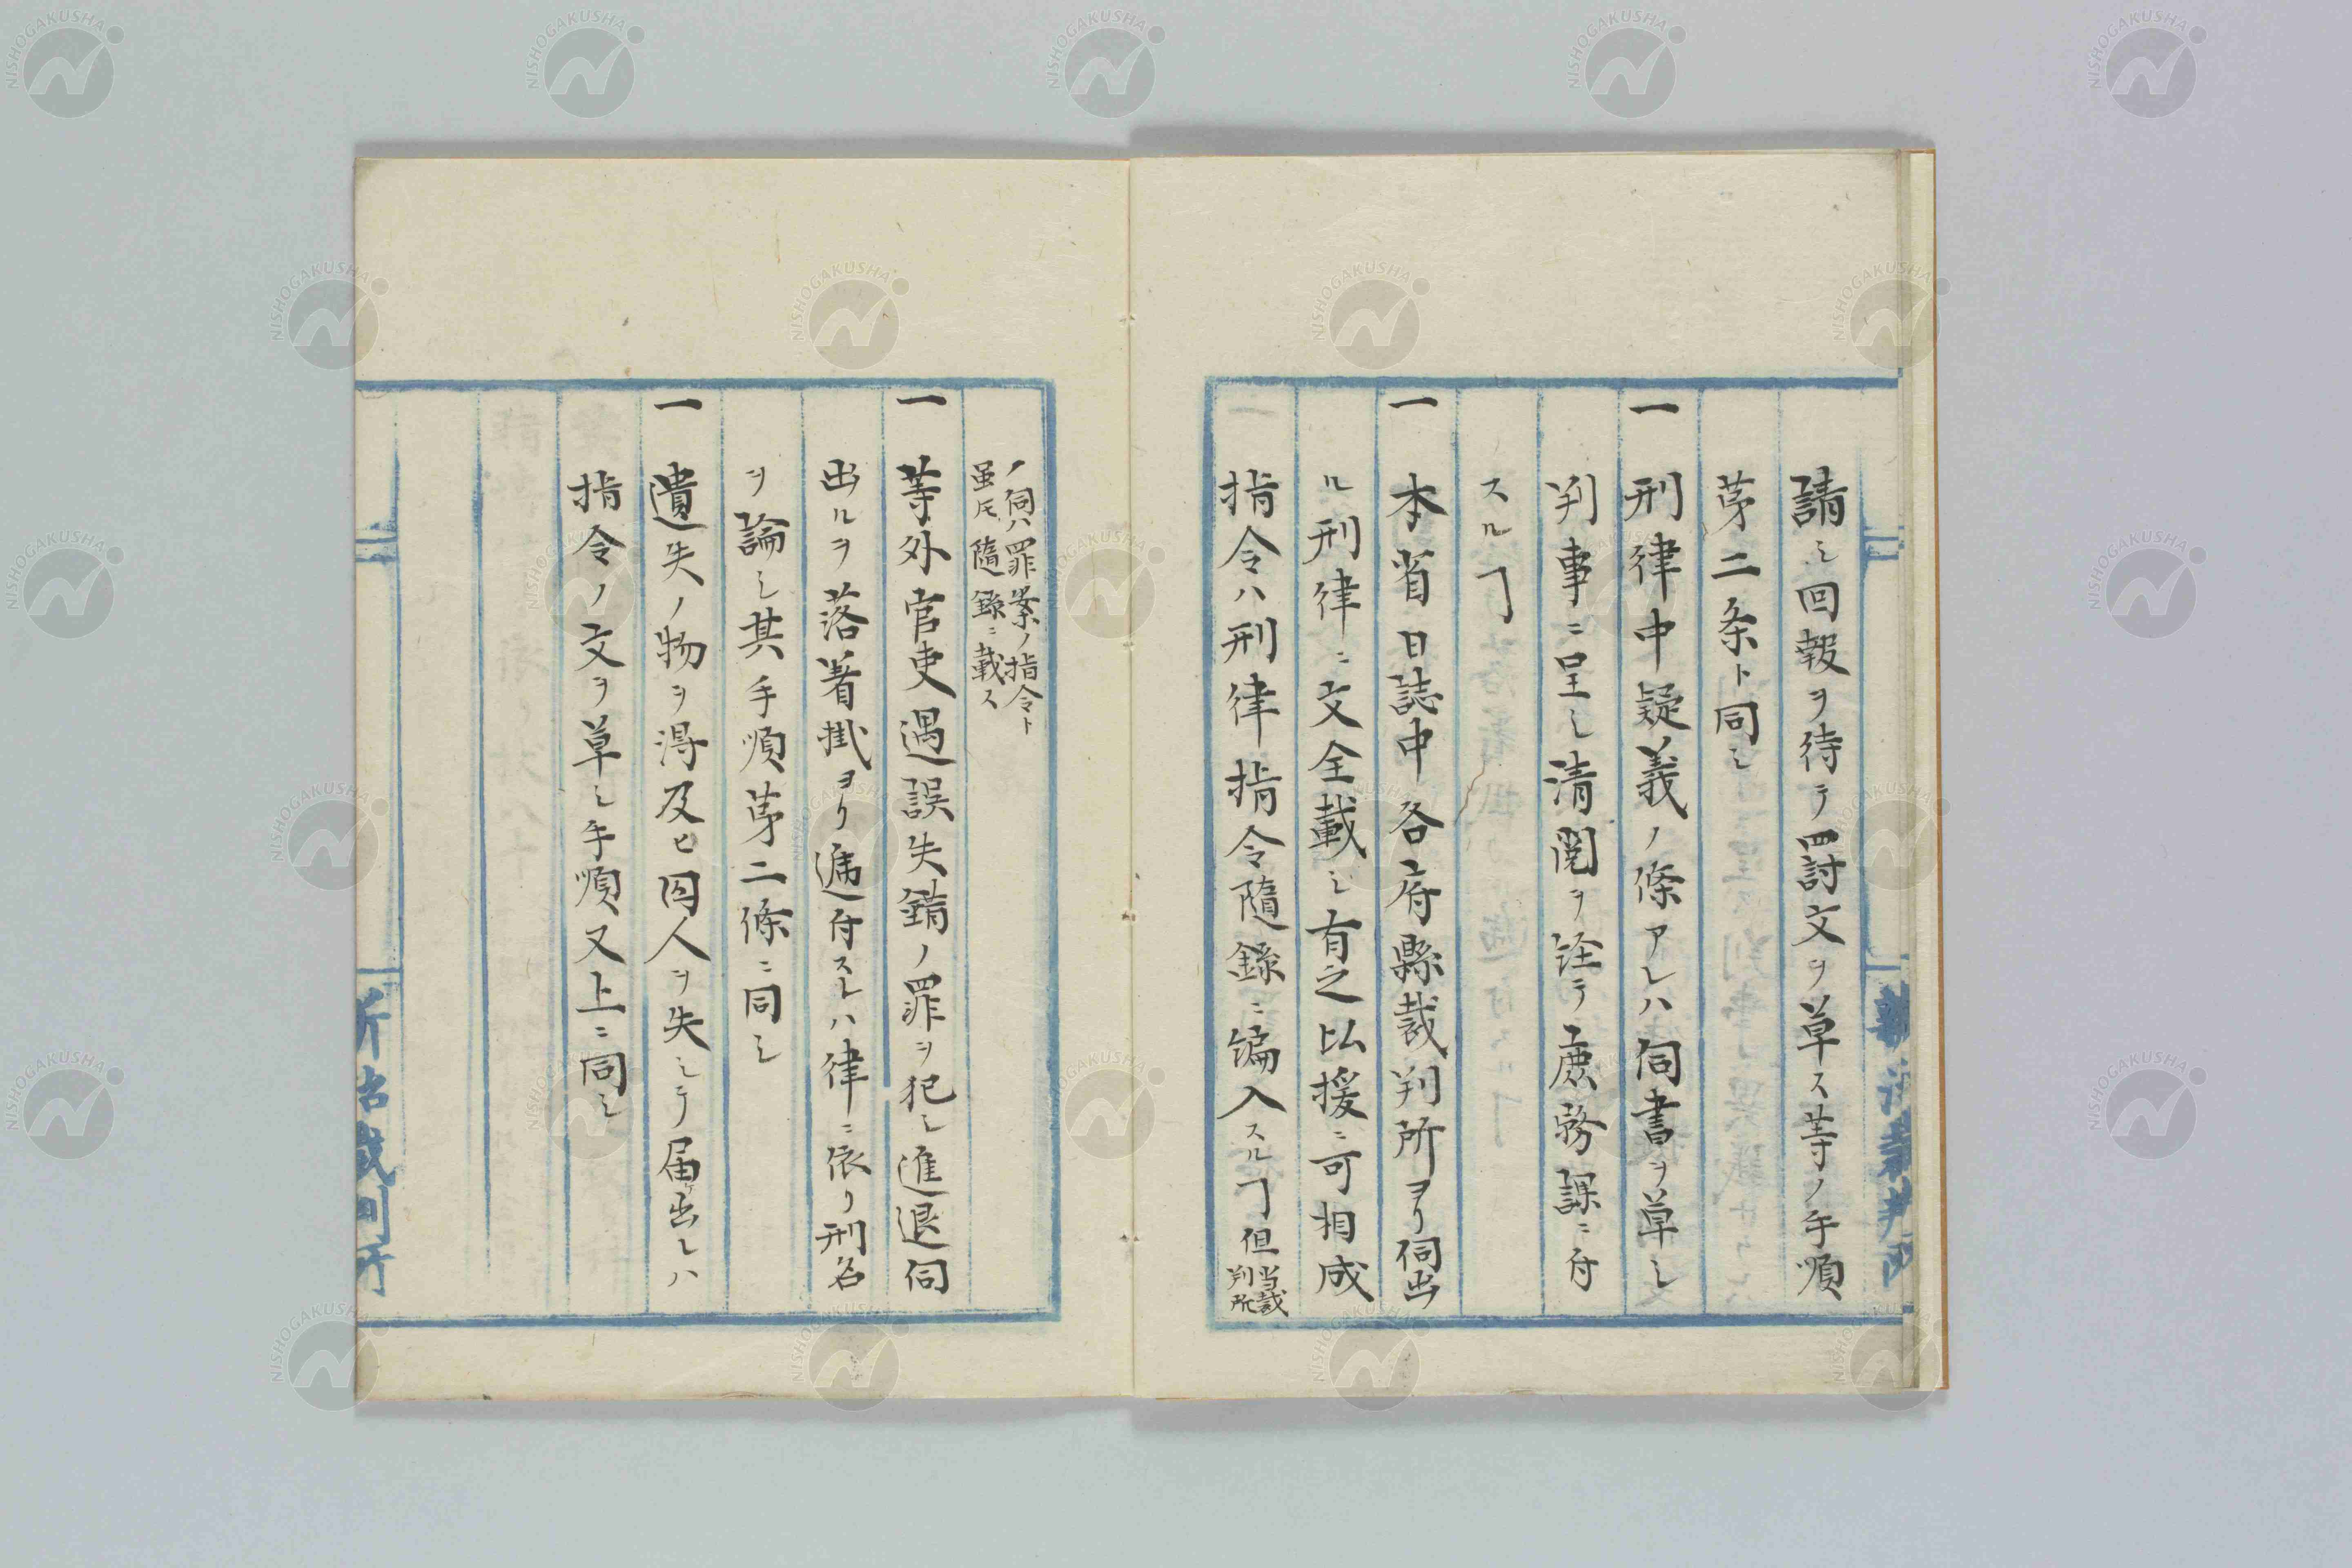 請シ回報ヲ待テ罸文ヲ草ス等ノ手順
茅二条ト同シ
一 刑律中疑義ノ條アレハ伺書ヲ草シ
判事ニ呈シ清閲ヲ経テ庶務課ニ付
スルヿ
一 本省日誌中各府縣裁判所ヨリ伺出
ル刑律ニ文全載シ有之以援ニ可相成
指令ハ刑律指令隨錄ニ编入スルヿ但当裁
判所
ノ伺ハ罪案ノ指令ト
虽𪜈隨錄ニ載ス
一 等外官吏過誤失錯ノ罪ヲ犯シ進退伺
出ルヲ落着掛ヨリ逓付スレハ律ニ依リ刑名
ヲ論シ其手順茅二條ニ同シ
一 遺失ノ物ヲ得及ヒ囚人ヲ失シテ届ケ出レハ
指令ノ文ヲ草シ手順又上ニ同シ
NISHOGAKUSHA